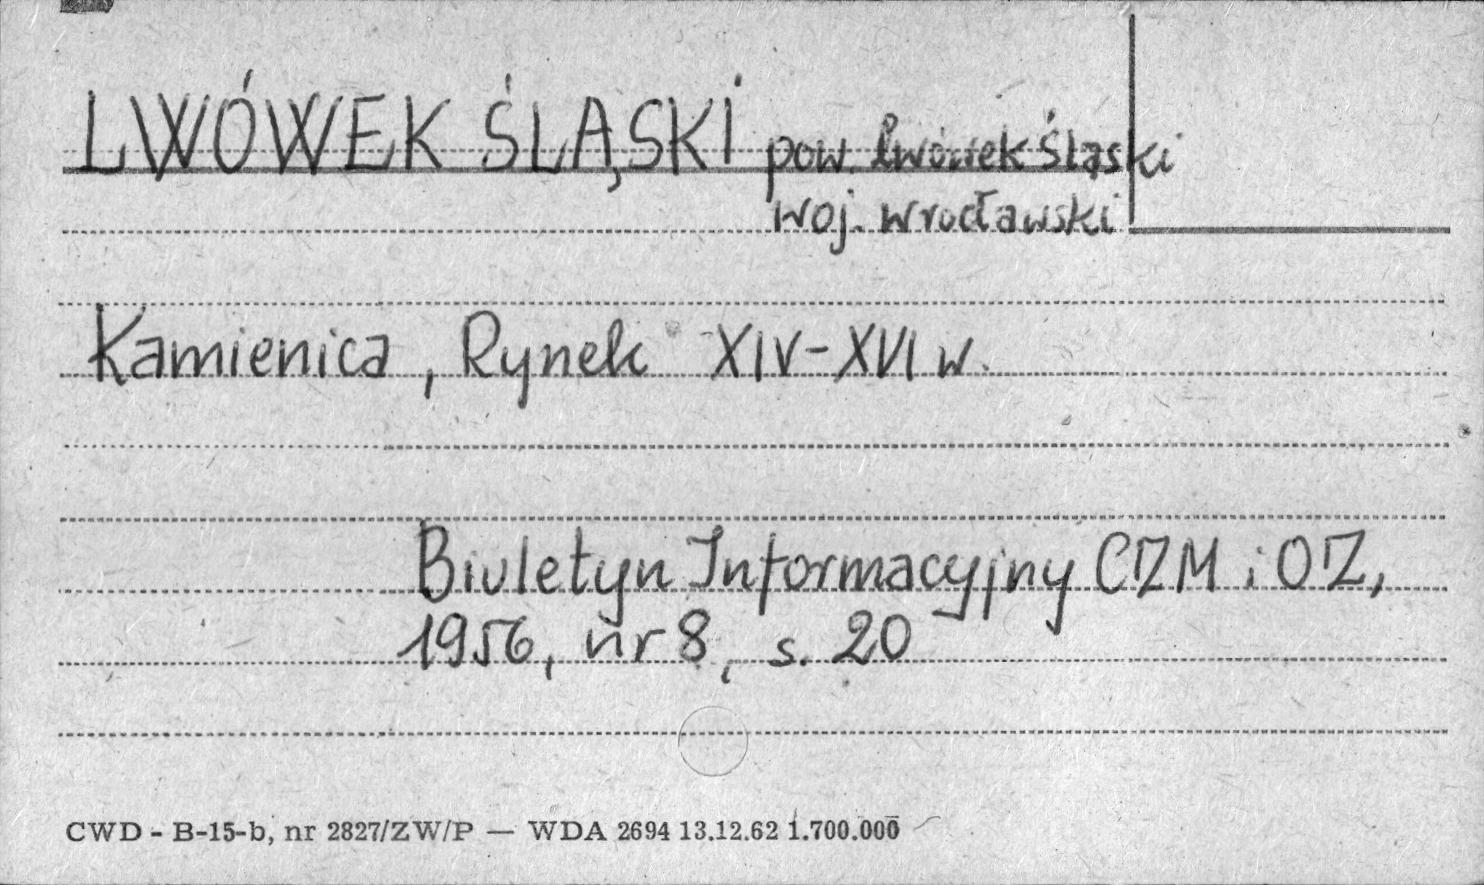 LWÓWEK ŚLĄSKI pow. Lwówek Śląski
woj. wrocławski
Kamienica, Rynek XIV-XVI w.
Biuletyn Informacyjny CZM i OZ,
1956, nr 8, s. 20
CWD - B-15-b, nr 2827/ZW/P — WDA 2694 13.12.62 1.700.000